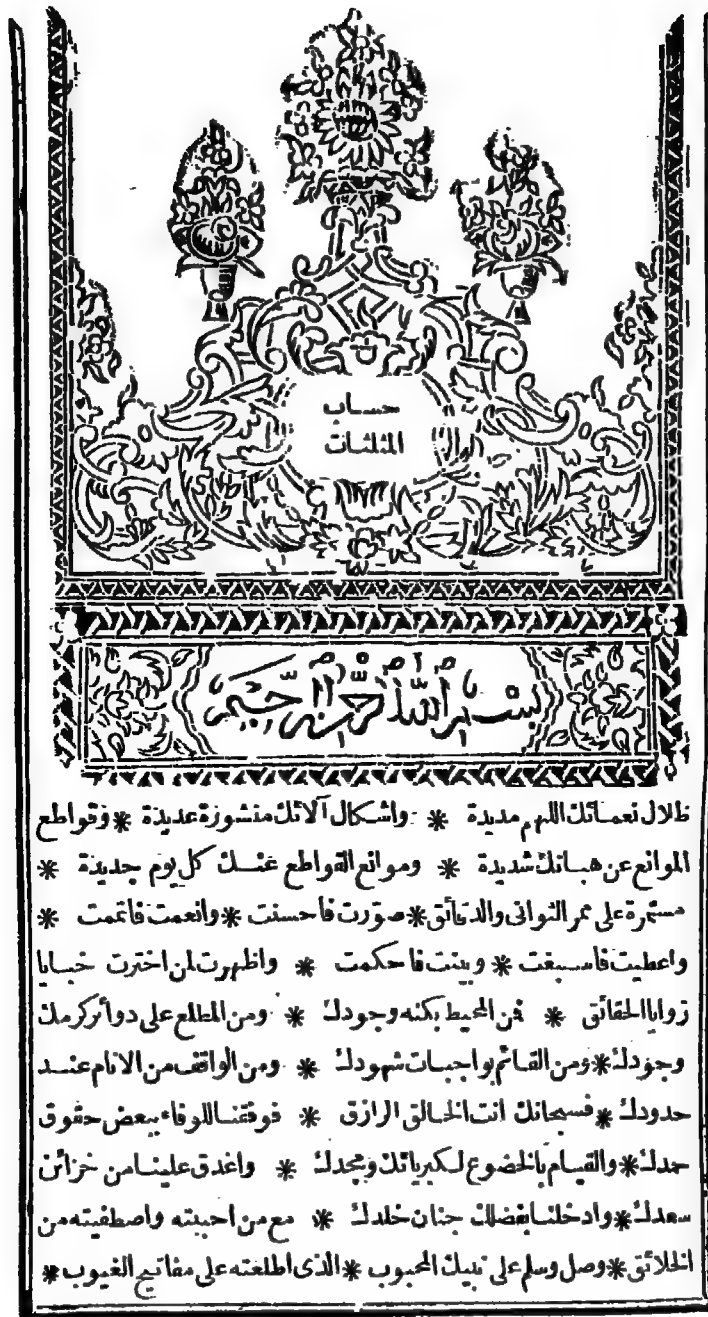 حساب
المثلثات
بسم الله الرحمن الرحيم
ظلال نعمائك اللهم مديدة * واشكال آلائك منشوزة عديدة * وقواطع
الموانع عن هباتك شديدة * وموانع القواطع عنك كل يوم جديدة *
مستمرة على ممر الثوانى والدقائق * صوّرت فاحسنت * وانعمت فاتممت *
واعطيت فاسبغت * وبينت فاحكمت * واظهرت لمن اخترت خبايا
زوايا الحقائق * فمن المحيط بكنه وجودك * ومن المطلع على دوائر كرمك
وجودك * ومن القائم بواجبات شهودك * ومن الواقف من الانام عند
حدودك * فسبحانك انت الخالق الرازق * فوفقنا للوفاء ببعض حقوق
حمدك * والقيام بالخضوع لكبريائك ومجدك * واغدق علينا من خزائن
سعدك * وادخلنا بفضلك جنان خلدك * مع من احببته واصطفيته من
الخلائق * وصل وسلم على نبيك المحبوب * الذى اطلعته على مفاتيح الغيوب *